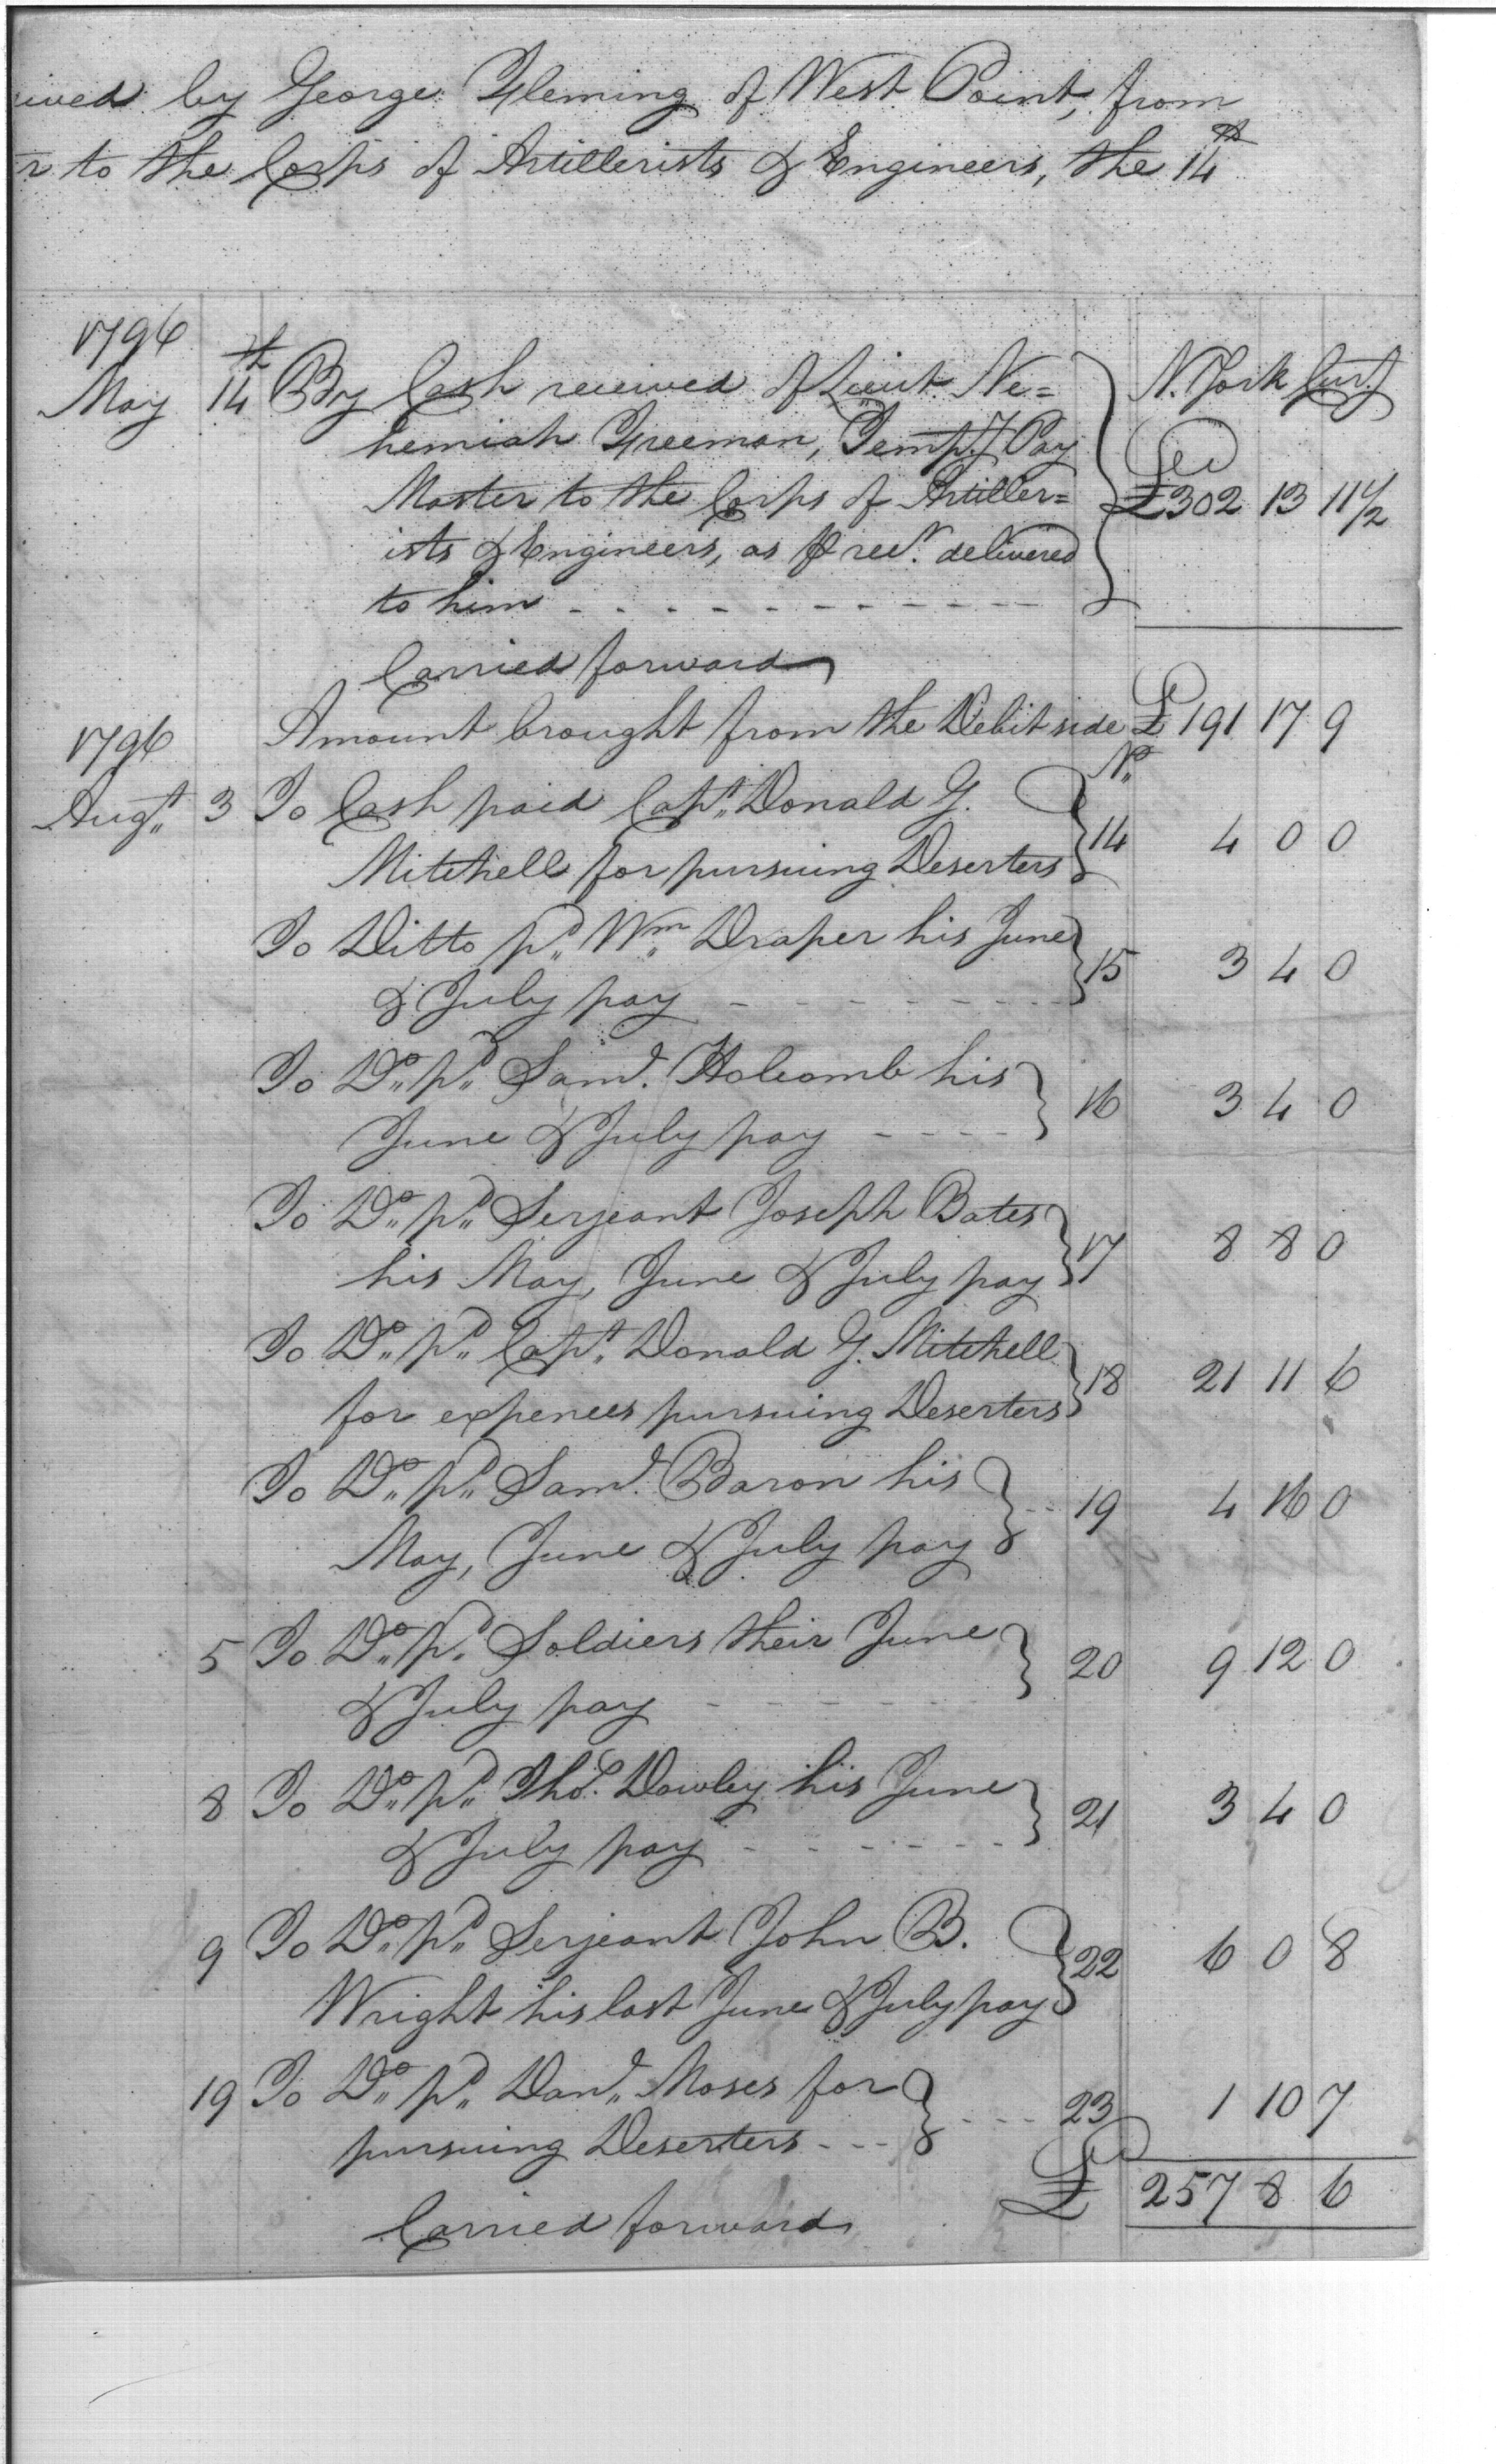 ived by George Fleming of West Point, from
r to the Corps of Artillerists & Engineers, the 14th
1796
May 14th By Cash received of Lieut. Ne= N. York Curcy
hemiah Freeman, Tempy Pay
Master to the Corps of Artiller= £302 13 11 1/2
ists & Engineers, as ⅌ rect. delivered
to him - - - - - - - - - - - -
Carried forward
1796 Amount brought from the Debit side £191 17 9
No.
Augt. 3 To Cash paid Capt. Donald G.
Mitchell for pursuing Deserters } 14 4 0 0
To Ditto pd. Wm. Draper his June
& July pay - - - - - - - - - } 15 3 4 0
To Do. pd. Saml. Holcomb his
June & July pay - - - - } 16 3 4 0
To Do. pd. Serjeant Joseph Bates
his May, June & July pay } 17 8 8 0
To Do. pd. Capt. Donald G. Mitchell
for expences pursuing Deserters } 18 21 11 6
To Do. pd. Saml. Baron his
May, June & July pay } - - 19 4 16 0
5 To Do. pd. Soldiers their June
& July pay - - - - - - - } 20 9 12 0
8 To Do. pd. Thos. Dowley his June
& July pay - - - - - - - } 21 3 4 0
9 To Do. pd. Serjeant John B.
Wright his last June & July pay } 22 6 0 8
19 To Do. pd. Danl. Moses for
pursuing Deserters - - - } - - - 23 1 10 7
£ 257 8 6
Carried forward